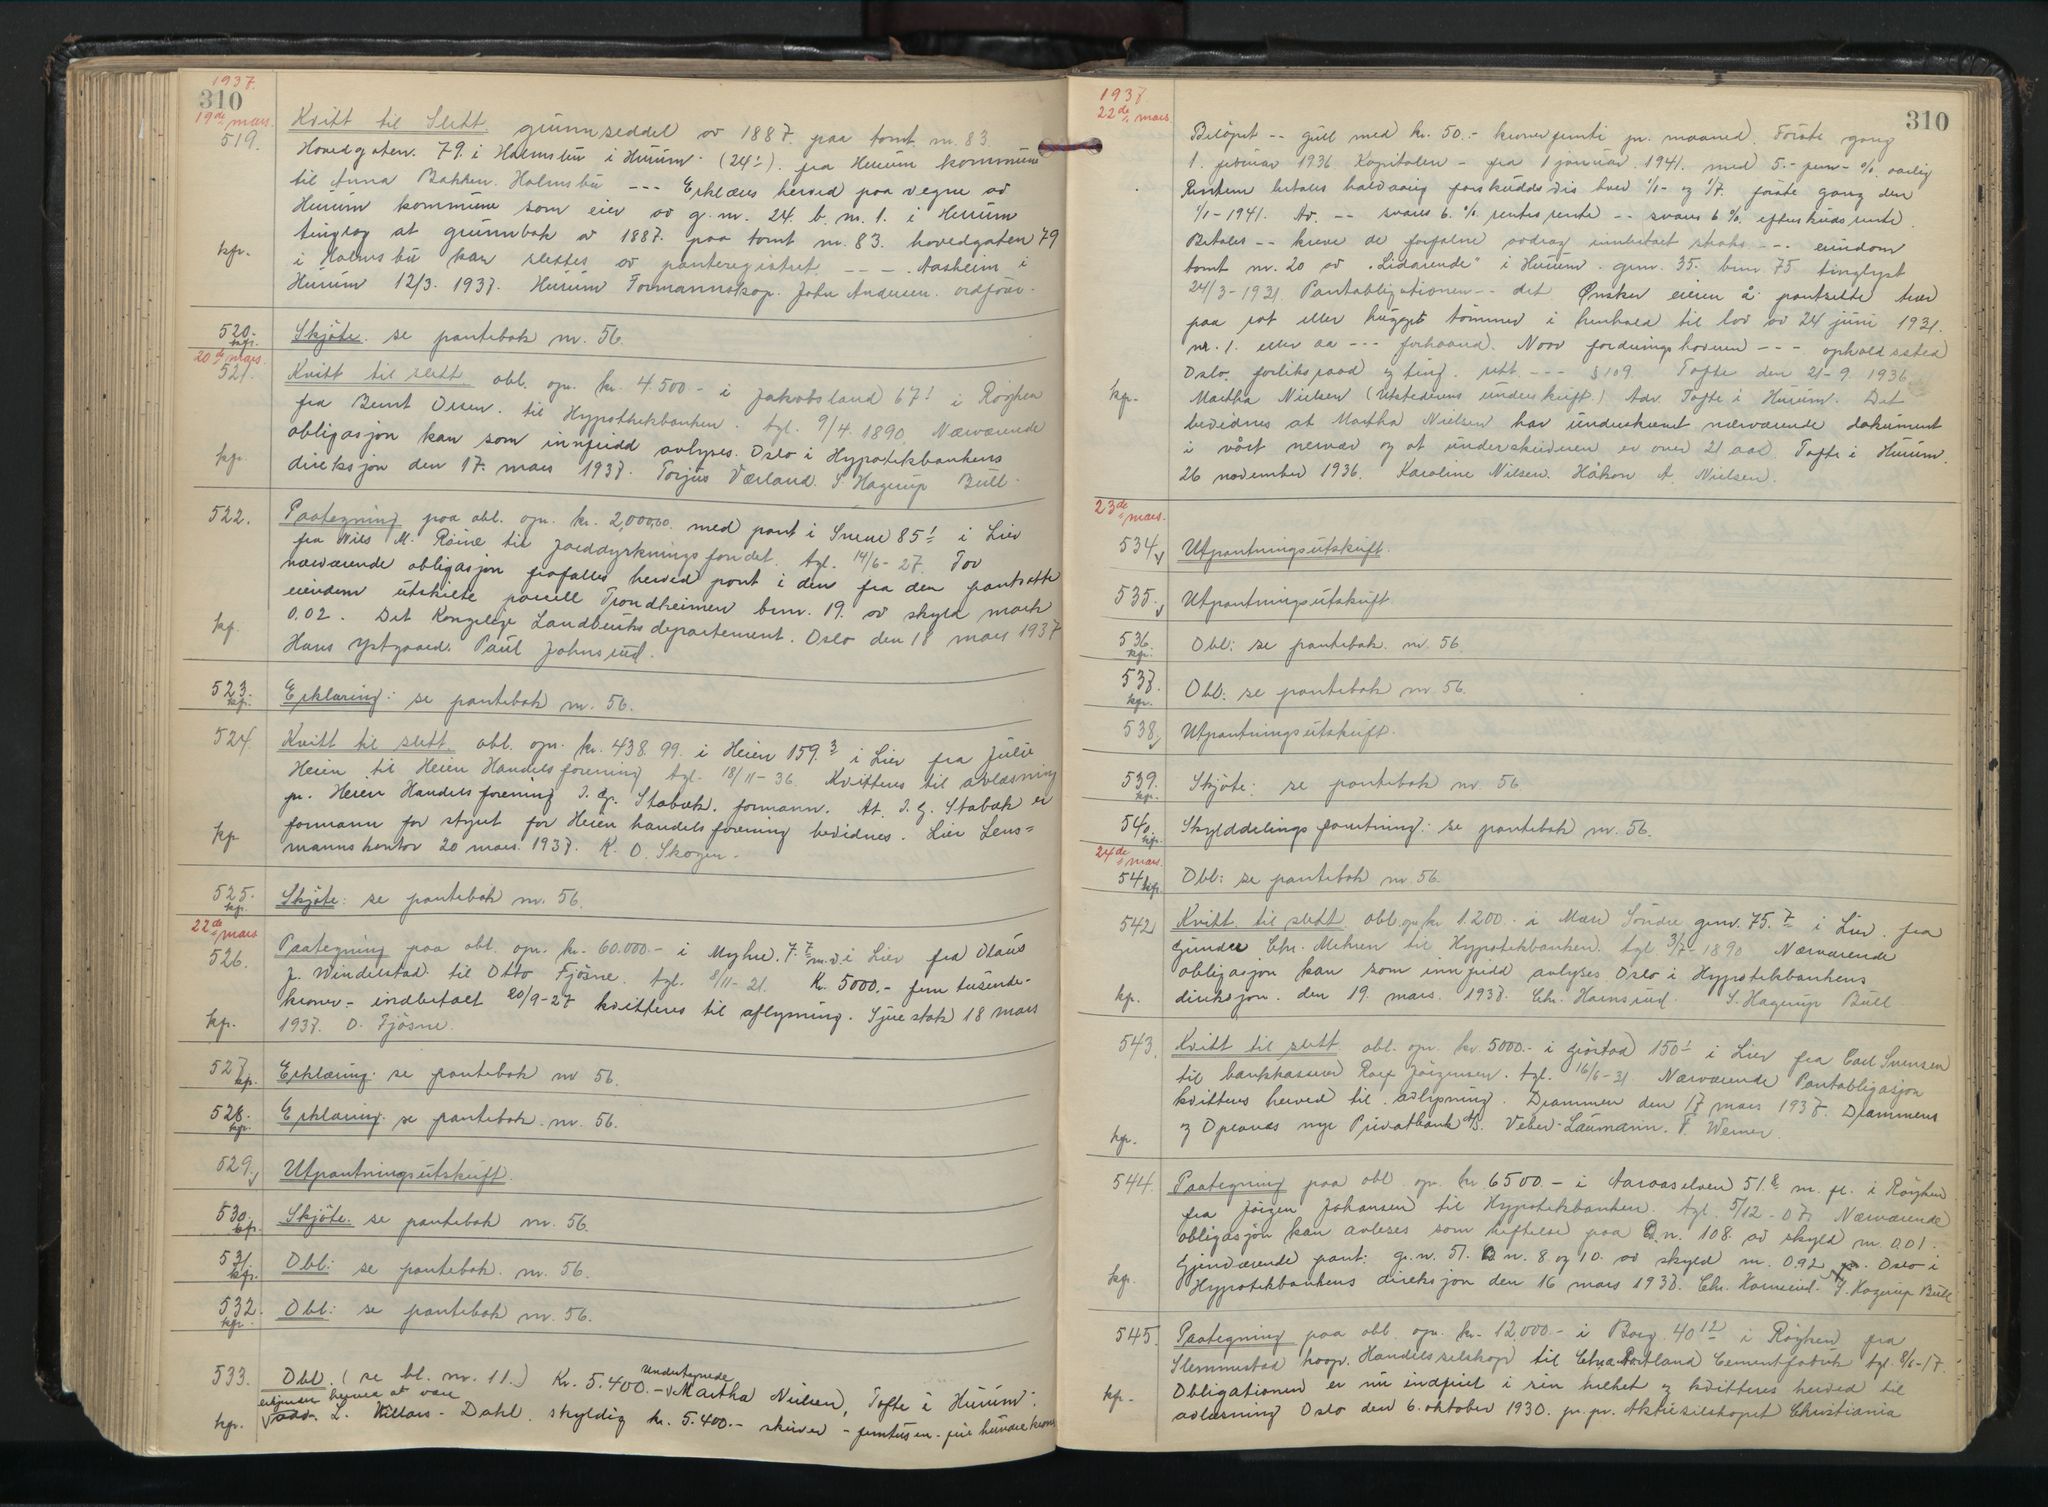 1937.
310
19de mars.
519. Kvitt til Slett. grunnseddel av 1887. paa tomt nr. 83.
Hovedgaten. 79. i Holmsbu i Hurum. (24¹) fra Hurum kommune
til Anna Bakken. Holmsbu --- Erklæres herved paa vegne av
Hurum kommune som eier av g.nr. 24. b.nr. 1. i Hurum
tinglag at grunnbok av 1887. paa tomt nr. 83. hovedgaten 79
kp. i Holmsbu kan slettes av panteregistret. --- Aasheim i
Hurum 12/3. 1937. Hurum Formannskap. John Andersen. ordfører.
520. kp. Skjöte. se pantebok nr. 56.
20de mars.
521. Kvitt til slett obl. opr. kr. 4.500- i Jakobsland 67¹ i Röyken
fra Bernt Olsen. til Hypothekbanken. tgl. 9/4. 1890. Nærværende
obligasjon kan som innfridd avlyses. Oslo i Hypotekbankens
kp. direksjon den 17. mars 1937. Torjus Værland. S. Hagerup Bull.
522. Paategning paa obl. opr. kr. 2,000,00. med pant i 85¹ i Lier
fra Nils M. til Jorddyrkningsfondet. tgl. 14/6-27. For
nærværende obligasjon frafalles herved pant i den fra den pantsatte
eiendom utskilte parsell Trondheimen bnr. 19. av skyld mark
kp. 0.02. Det Kongelige Landbruksdepartement. Oslo den 18 mars 1937
Hans Ystgaard. Paul Johnsrud.
523. kp. Erklæring: se pantebok nr. 56.
524. Kvitt til slett obl. opr. kr. 438.99. i Heien 159.³ i Lier fra Julie
Heien til Heien Handelsforening tgl. 18/11-36 Kvitteres til avlæsning
pr. Heien Handelsforening I. G. Stabæk. formann. At I. G. Stabæk er
kp formann for styret for Heien handelsforening bevidnes. Lier Lens=
mannskontor 20 mars. 1937. K. O. Skogen.
525. kp. Skjöte: se pantebok nr. 56.
22de mars
526. Paategning paa obl. opr. kr. 60.000.- i Myhre. 7.⁷ m.v. i Lier fra Olaus
J. Windelstad. til Otto Fjösne. tgl. 8/11-21. Kr. 5000.- fem tusende-
kroner- indbetalt 20/9-27 kvitteres til aflysning. Sjåestok 18 mars
kp. 1937. O. Fjösne.
527 kp. Erklæring: se pantebok nr 56.
528. kp. Erklæring: se pantebok. nr. 56.
529. Utpantningsutskrift.
530. kp. Skjöte. se pantebok nr. 56.
531 kp. Obl: se pantebok. nr. 56.
532. kp. Obl: se pantebok nr. 56.
533. Obl. (se bl. nr. 11.) Kr. 5.400.- Undertegnede Martha Nielsen, Tofte i Hurum.
erkjenner herved at være
kp. adv. L. Willars-Dahl. skyldig kr. 5.400.- skriver -femtusen-fire hundre kroner
1937.
22de mars
310
Belöpet -- gull med kr. 50.- kroner femti pr. maaned. Förste gang
1. februar 1936 Kapitalen - fra 1 januar. 1941. med 5.- fem- %. aarlig
Renten betales halvaarig forskuddsvis hver 1/1- og 1/7. förste gang den
1/1-1941. Av. -- svares 6.% rentesrente -- svares 6% efterskuds rente.
Betales -- kreve de forfalne avdrag innbetalt straks --- eiendom
tomt nr. 20 av "Lidarende" i Hurum. gnr. 35. bnr. 75 tinglyst
24/3-1931. Pantobligationen -- det Ønsker eieren å pantsette trær
paa rot eller hugget tömmer i henhold til lov av 24 juni 1931.
nr. 1. eller aa --- forhaand. Naar fordringshaveren --- opholdssted
Oslo. forliksraad og ting. rett --- § 109. Tofte den 21-9. 1936.
kp. Martha Nielsen (Utstederens underskrift.) Adr. Tofte i Hurum. Det
bevidnes at Martha Nielsen har underskrevet nærværende dokument
i vårt nærvær og at underskriveren er over 21 aar. Tofte i Hurum.
26 november 1936. Karoline Nilsen. Håkon A. Nielsen.
23de mars.
534 Utpantningsutskrift.
535. Utpantningsutskrift.
536. kp. Obl: se pantebok. nr. 56.
537. kp. Obl: se pantebok nr. 56.
538 Utpantningsutskrift.
539. kp. Skjöte: se pantebok nr. 56
540. kp. Skylddelings forretning: se pantebok nr. 56.
24de mars.
541 kp. Obl: se pantebok nr. 56.
542 Kvitt til slett. obl. opr kr 1.200.- i Mære Söndre gnr. 75.⁷ i Lier. fra
Gunder Chr. Mehren til Hypotekbanken. tgl 3/7-1890 Nærværende
obligasjon kan som innfridd avlyses Oslo i Hypotekbankens
kp. direksjon. den 19. mars. 1937. Chr. Hornsrud. S. Hagerup Bull
543. Kvitt til slett. obl. opr. kr. 5000.- i Gjöstad 150¹ i Lier fra Carl Svensen
til bankkasserer Rolf Jörgensen. tgl. 16/6-31 Nærværende Pantobligasjon
kvitteres herved til avlysning. Drammen den 17 mars 1937. Drammens
kp. og Oplands nye Privatbank A/S. Veber-Laumann. F. Werner.
544. Paategning paa obl. opr. kr 6500.- i Aaraaselven 51.⁸ m. fl. i Röyken
fra Jörgen Johansen til Hypotekbanken. tgl. 5/12-07. Nærværende
obligasjon kan avleses som heftelse paa B.n. 108. av skyld m. 0.01.
Gjenværende pant: g.n. 51. B.n. 8 og 10. av skyld m. 0.92 Oslo i
kp. Hypotekbankens direksjon den 16 mars 1937. Chr. Hornsrud. S. Hagerup Bull
545. Paategning paa obl. opr. kr. 12.000.- i Borg 40¹² i Röyken fra
Slemmestad koop. Handelsselskap til Chra. Portland Cementfabrik tgl. 8/6-17.
kp. Obligationen er nu indfriet i sin helhet og kvitteres herved til
avlæsning Oslo den 6. oktober 1930. pr. pr. Aktieselskapet Christiania